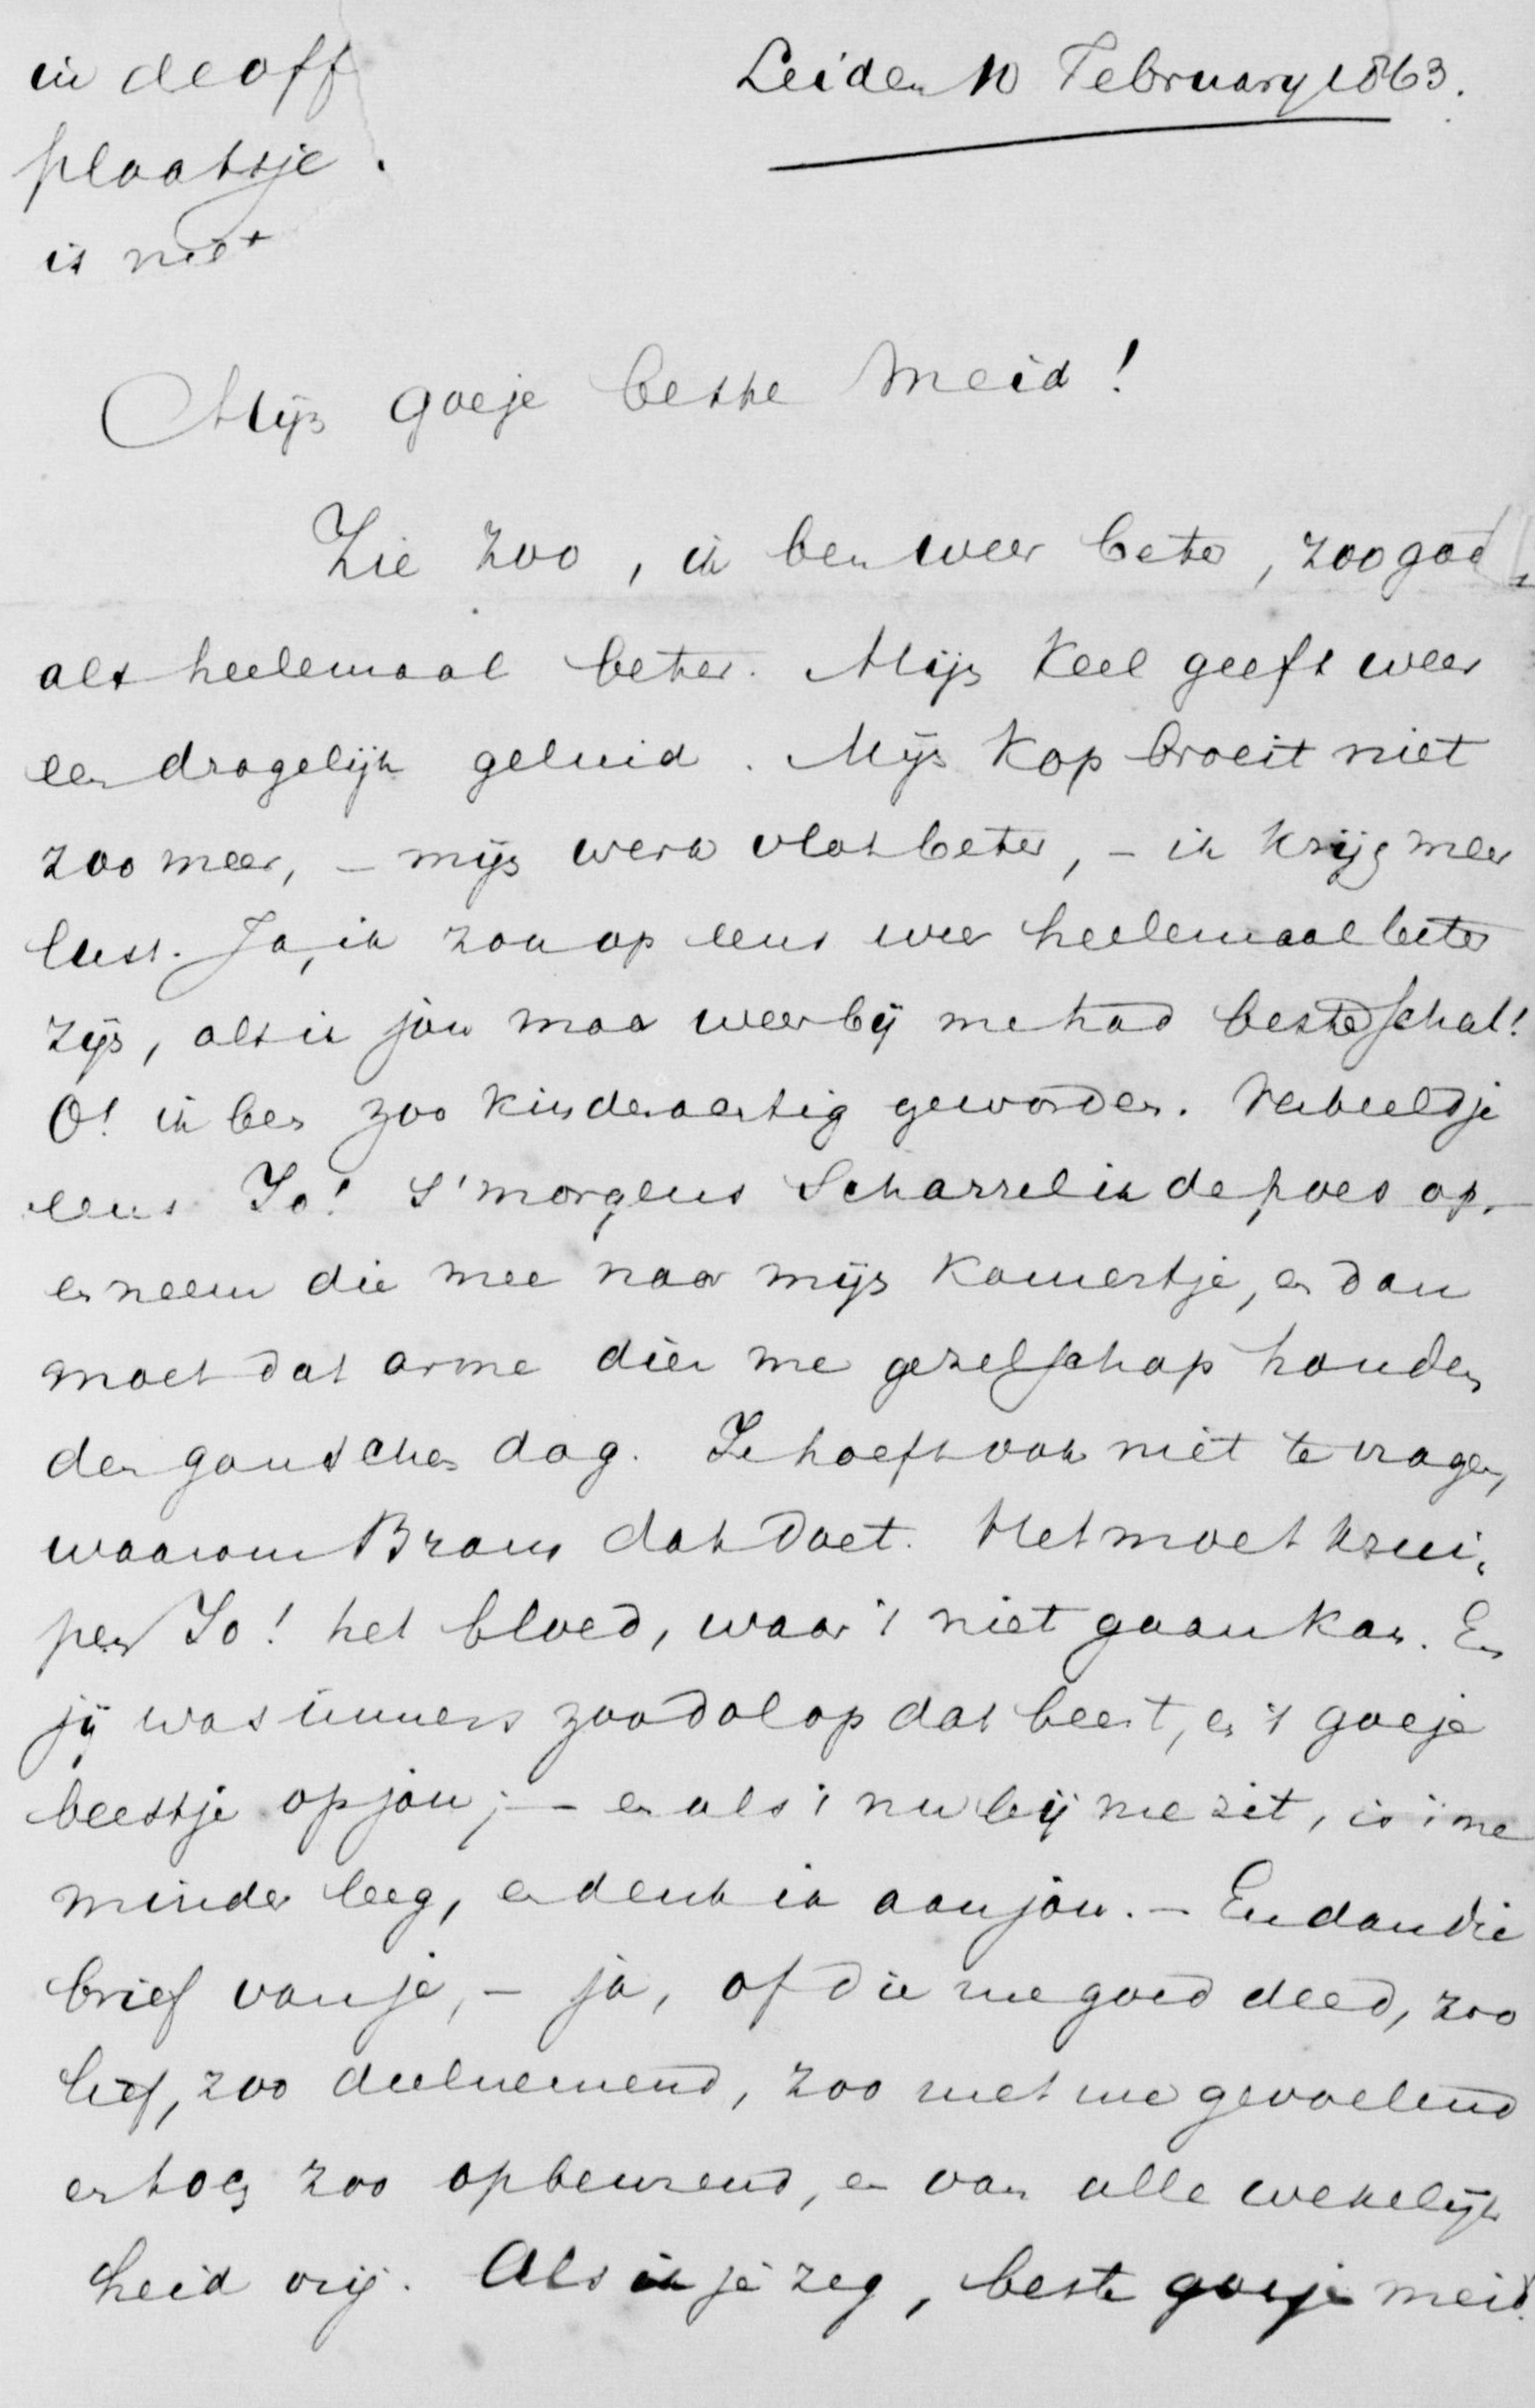 in de off
plaatsje.
is niet
Leiden 10 February 1863.
Mijn goeje beste Meid!
Zie zoo, ik ben weer beter, zoogoed
als heelemaal beter. Mijn Keel geeft weer
een dragelijk geluid. Mijn Kop broeit niet
zoo meer, – mijn werk vlot beter, – ik Krijg meer
lust. Ja, ik zou op eens weer heelemaal beter
zijn, als ik jou maar weer bij me had beste schat!
O! ik ben zoo Kinderachtig geworden. Verbeeld je
eens Jo! S'morgens Scharrel ik de poes op, –
en neem die mee naar mijn Kamertje, en dan
moet dat arme dier me gezelschap houden
den ganschen dag. Je hoeft ook niet te vragen,
waarom Bram dat doet. Het moet krui-
pen Jo! het bloed, waar 't niet gaan Kan. En
jij was immers zoo dol op dat beest, en 't goeje
beestje op jou; – en als 't nu bij me zit, is 't me
minder leeg, en denk ik aan jou. – En dan die
brief van je, – ja, of die me goed deed, zoo
lief, zoo deelnemend, zoo met me gevoelend
en toch zoo opbeurend, en van alle wekelijk
heid vrij. Als ik je zeg, beste goeje meid